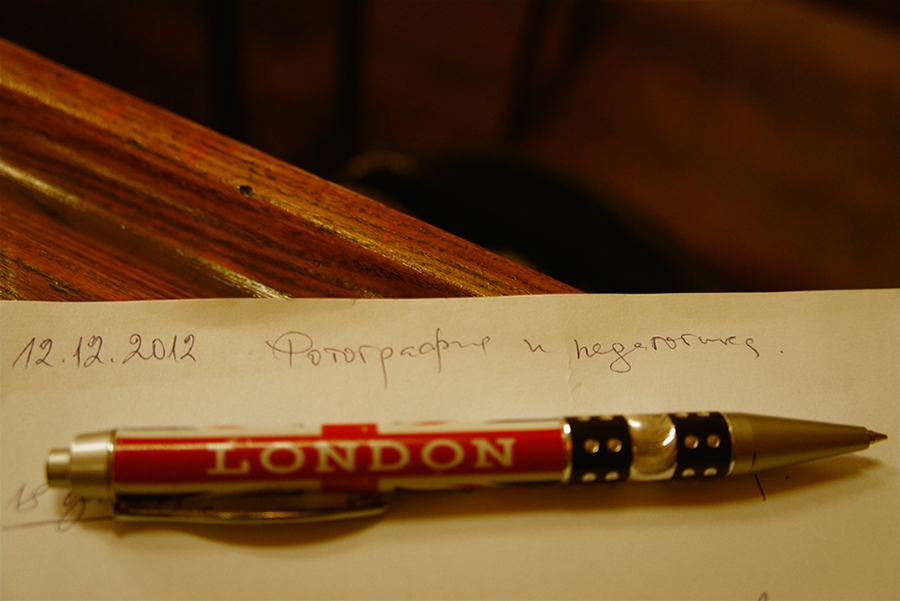 12.12.2012 Фотография и педагогика.
LONDON